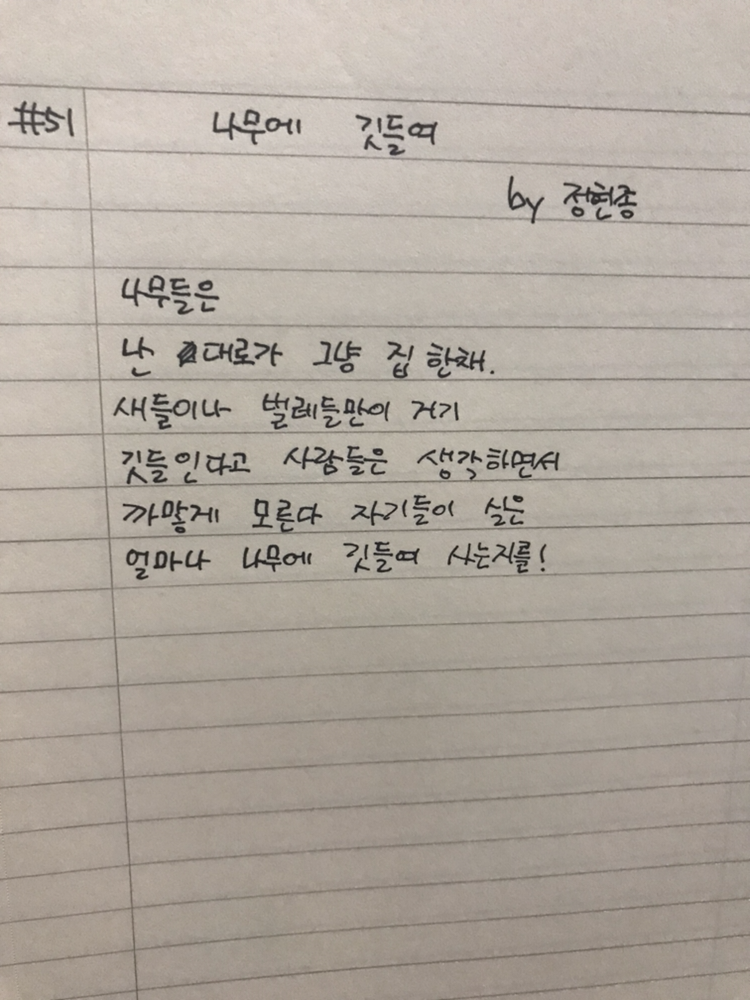 #51 나무에 깃들여
by 정현종
나무들은
난 대로가 그냥 집 한채.
새들이나 벌레들만이 거기
깃들인다고 사람들은 생각하면서
까맣게 모른다 자기들이 실은
얼마나 나무에 깃들여 사는지를!